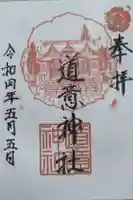 奉拝
道荷神社
令和四年五月五日